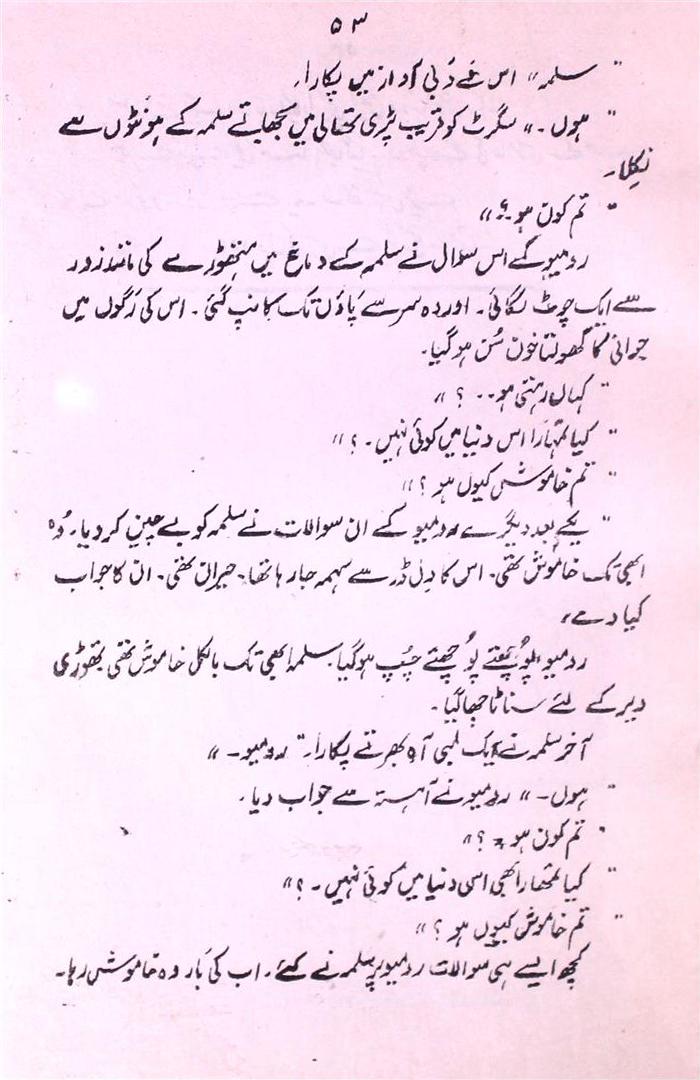 ۵۳
" سلمہ" اس نے دَبی آواز میں پکارا۔
" ہوں۔" سگرٹ کو قریب پڑی تھالی میں بجھاتے سلمہ کے ہونٹوں سے
نکلا۔
" تم کون ہو۔؟"
ردمیو کے اس سوال نے سلمہ کے دماغ میں ہتھوڑے کی مانند زور
سے ایک چوٹ لگائی۔ اور وہ سر سے پاؤں تک کانپ گئی۔ اس کی رَگوں میں
جوانی کا کھولتا خون سُن ہو گیا۔
" کہاں رہتی ہو۔۔ ؟"
" کیا تمہارا اس دنیا میں کوئی نہیں۔ ؟"
" تم خاموش کیوں ہو ؟"
" یکے بعد دیگرے رومیو کے ان سوالات نے سلمہ کو بے چین کر دیا۔ وُہ
ابھی تک خاموش تھی۔ اس کا دِل ڈر سے سہمہ جا رہا تھا۔ حیران تھی۔ ان کا جواب
کیا دے،
ردمیو پوُچھتے پوُچھتے چُپ ہو گیا۔ سلمہ ابھی تک بالکل خاموش تھی۔ تھوڑی
دیر کے لئے سناٹا چھا گیا۔
آخر سلمہ نے ایک لمبی آہ بھرتے پکارا۔ " رومیو۔ "
" ہوں۔" ردمیو نے آہستہ سے جواب دیا۔
" تم کون ہو ؟"
" کیا تمھارا بھی اسی دنیا میں کوئی نہیں۔ ؟"
" تم خاموش کیوں ہو ؟"
کچھ ایسے ہی سوالات ردمیو پر سلمہ نے کئے۔ اب کی بَار وہ خاموش رہا۔